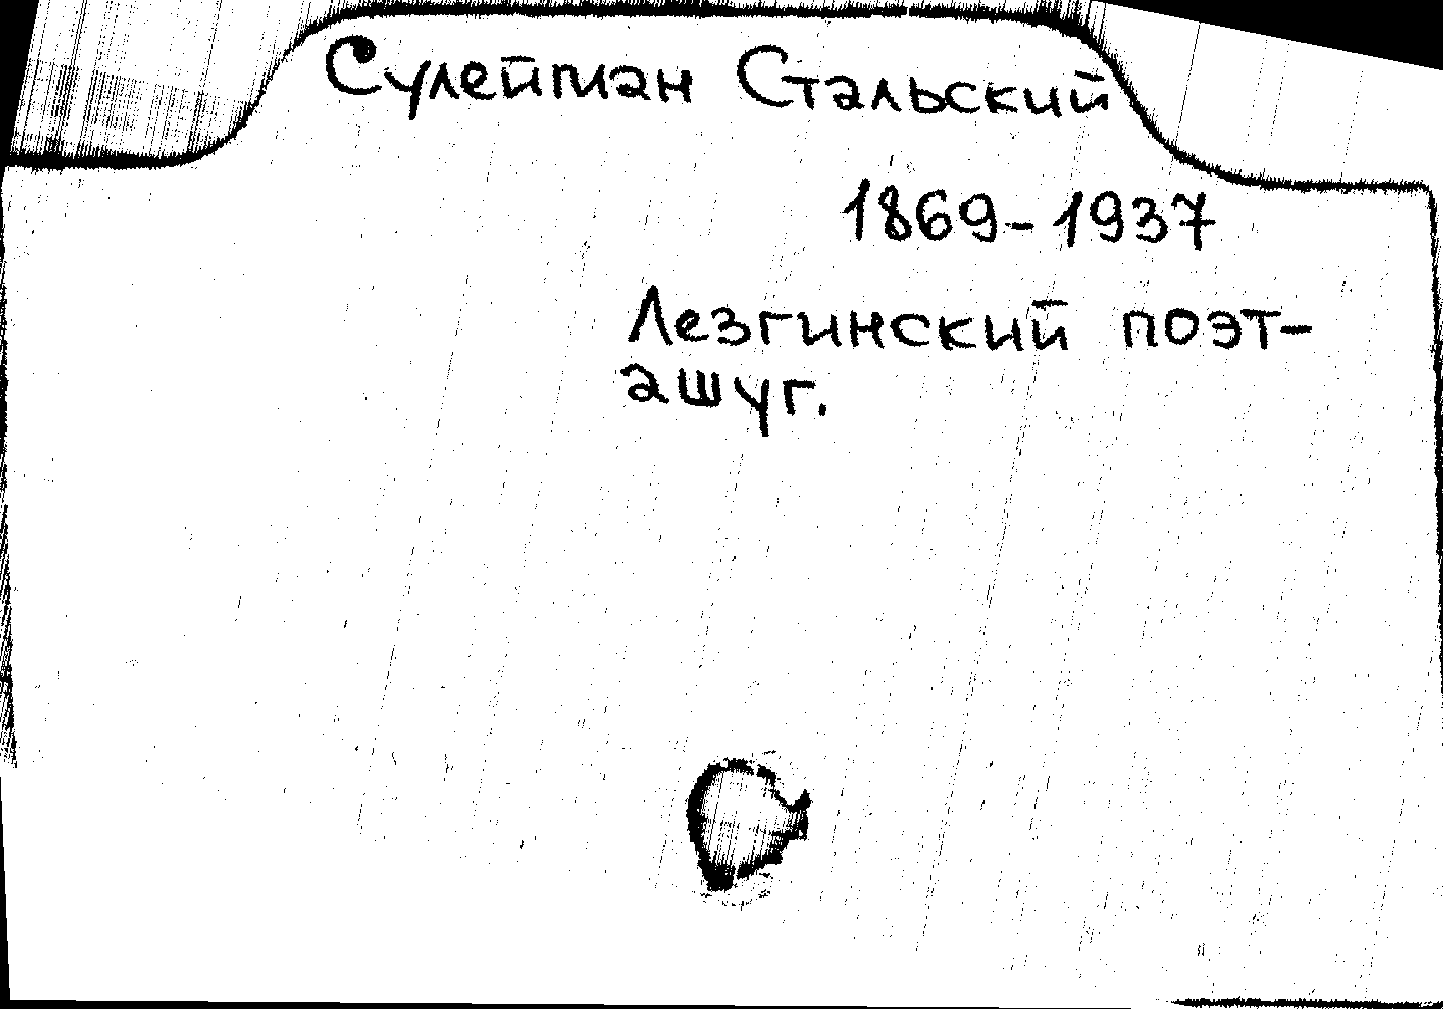 Сулейман Стальский
1869-1937
Лезгинский поэт-
ашуг.